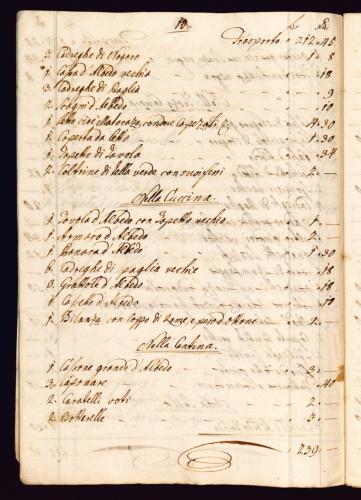 10.
Trasporto 212.45
3. Cadreghe di Nogaro 1.8
1. Cassa d'Albedo vechia .18
3. Cadreghe di Paglia .9
2. Scagni d'Albedo .10
1. Letto cioè Matarazo, con due Capezali 4.30
1. Coperta da letto 1.30
1. Tapetto di Tavola .34
2. Coltrine di tella verde con suoi feri 2.
Nella Cuccina.
1. Tavola d'Albedo con Tapetto vechio 1.
1. Armaro d'Albedo 2.
1. d'Albedo 1.30
6. Cadreghe di paglia vechie .18
d'Albedo .18
d'Albedo .10
1. Bilanza con Coppo di Rame, e peso d'ottone 2.
Nella Cantina.
1. Cassone grande d'Albedo 3.
3. .40
2. Caratelli voti 2.
2. Botterelle 3.
239.